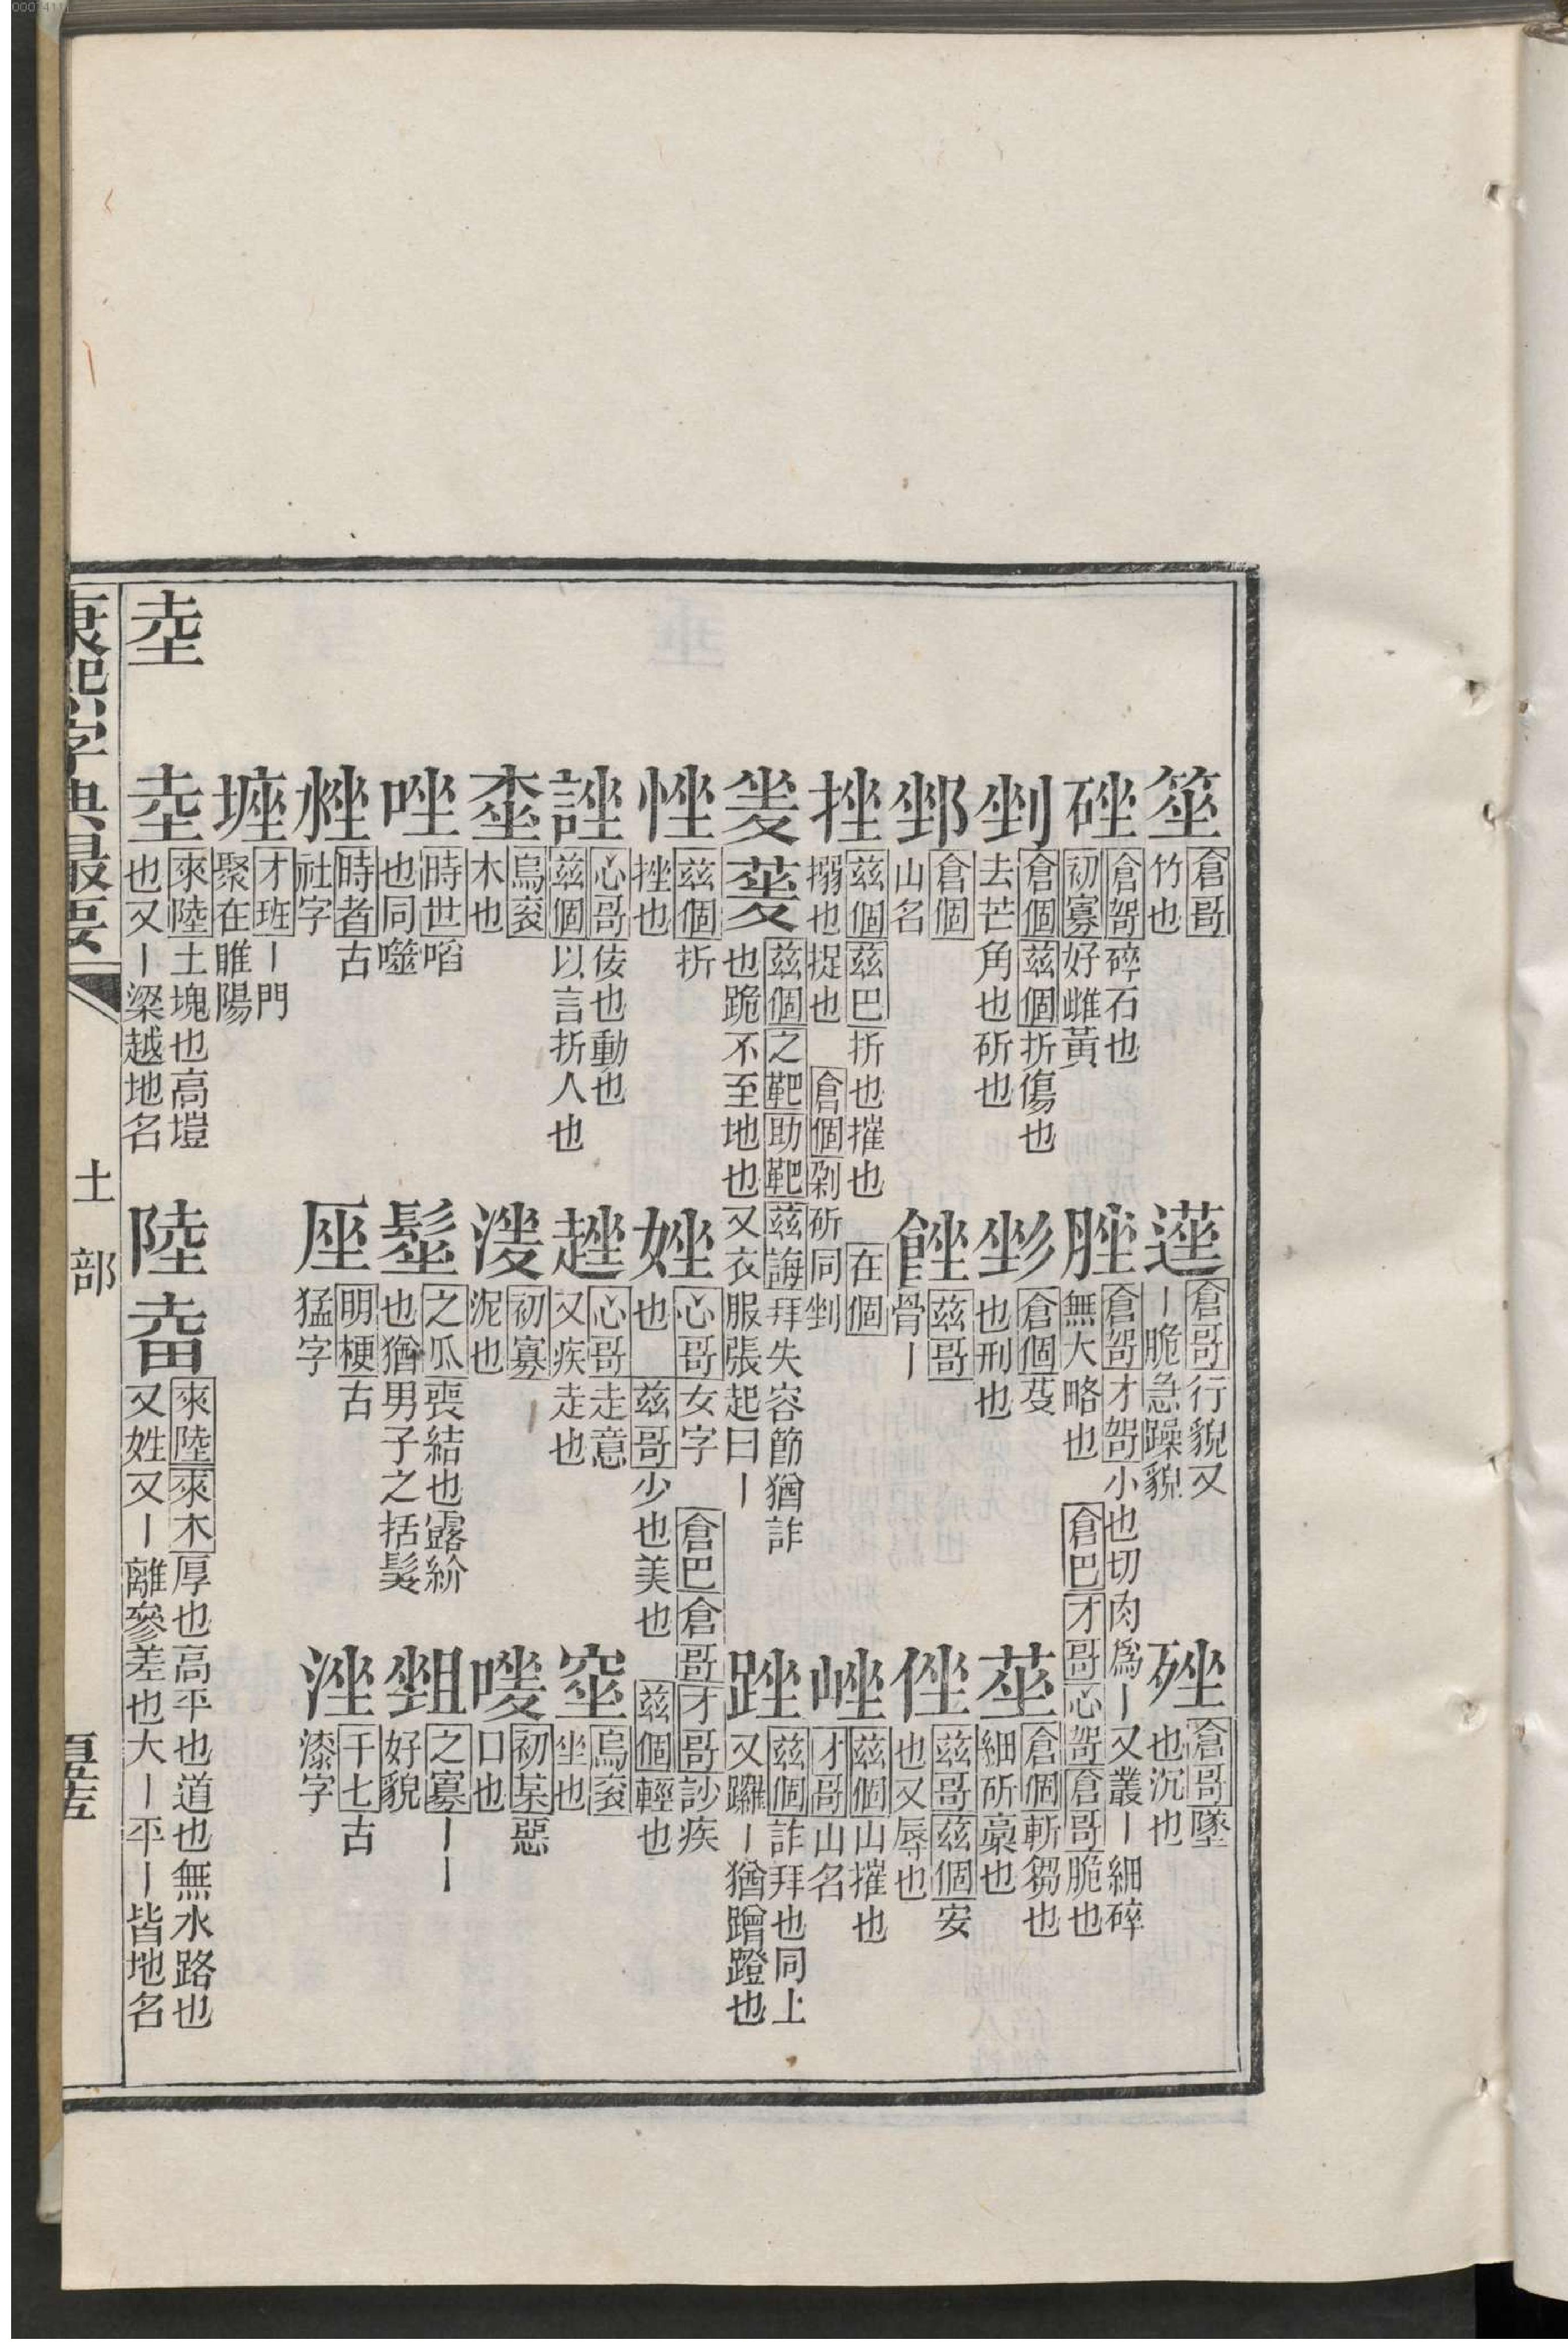 筮 倉哥竹也
蓌 倉哥行貌又丨脆急躁貌
硰 倉哥墜也沉也
硰 倉哿碎石也初寡好雌黃
脞 倉哿才哿小也切肉爲丨又叢丨細碎無大略也 倉巴才哥心哿倉哥脆也
剉 倉個茲個折傷也去芒角也斫也
倉個芟也刑也
莝 倉個斬芻也細斫藁也
倉個山名
茲哥骨丨
侳 茲哥茲個安也又辱也
挫 茲個茲巴折也摧也搦也捉也 倉個剁斫同剉 在個
茲個山摧也才哥山名
夎 茲個之靶助靶茲誨拜失容節猶詐也跪不至地也又衣服張起曰丨
茲個詐拜也同上又躐丨猶蹭蹬也
茲個折挫也
心哥女字也 茲哥少也美也 倉巴倉哥才哥訬疾 茲個輕也
心哥倿也動也茲個以言折人也
趖 心哥走意又疾走也
烏衮坐也
烏衮木也
初寡泥也
初某惡口也
時世啗也同噬
髽 之瓜喪結也露紒也猶男子之括髮
之寡丨丨好貌
時者古社字
明梗古猛字
千七古漆字
才班丨門聚在睢陽
坴
坴 來陸土塊也高塏也又丨梁越地名
陸 來陸來木厚也高平也道也無水路也又姓又丨離參差也大丨平丨皆地名
康熙字典最要
土部